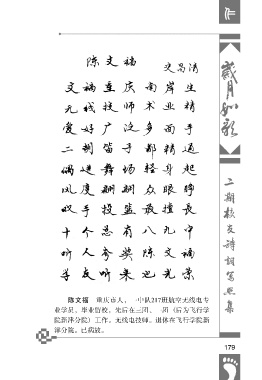 陈文福
史昌清
文福重庆南岸生
无线技师术业精
爱好广泛多面手
二胡笛子都精通
偶进舞场轻身起
风度翩翩众眼睁
双手投篮最擅长
十个总有八九中
听人夸奖陈文福
学友听来也光荣
陈文福 重庆市人，一中队207班航空无线电专
业学员。毕业留校。先后在三团、一团（后为飞行学
院新津分院）工作。无线电技师。退休在飞行学院新
津分院。已病故。
岁月如歌
二期校友诗词写照集
179